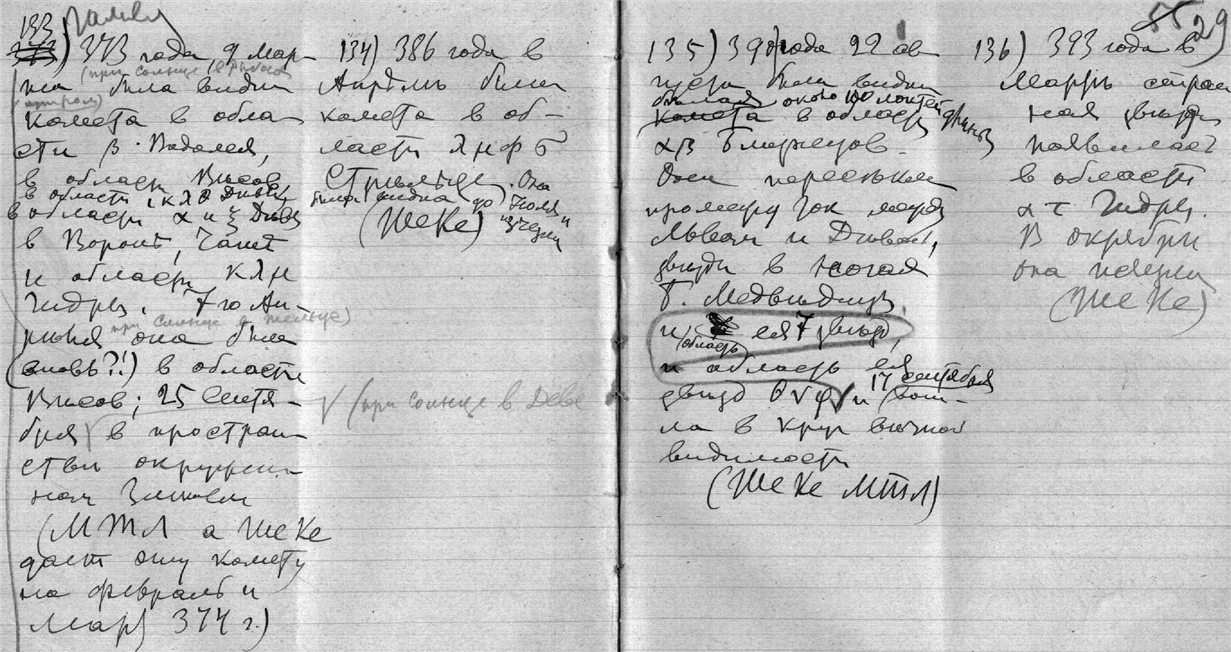 133) 373 года, 9 мар-
(при солнце в Рыбах)
та была видна
комета в обла-
сти β Водолея,
в области Весов
в области ι κ λ θ Девы
в области α и ξ Девы
в Вороне, Чаше
и области κ λ μ
Гидры. 7го Ап-
при солнце в тельце)
реля она была
(вновь?!) в области
Весов; 25 сентя-
(при солнце в Деве
бря в простран-
стве окружен-
ном Змеем
(МТЛ а Ше Ке
дает эту комету
на февраль и
март 374 г.)
134) 386 года в
Апреле была
комета в об-
ласти λ μ φ σ
Стрельца. Она
была видна до "Июля"
(Ше Ке)
135) 390 года 22 ав-
густа была видна
белая около 100 локтей длины
комета в области
α β Близнецов.
Она пересекла
промежуток между
Львом и Девой,
звезды в ногах
Б. Медведицы,
и ея 7 звезд,
(область)
и область ея
звезд θ ν φ и 17 сентября
вош-
ла в круг вечной
видимости
(Ше Ке МТЛ)
29
136) 393 года в
Марте стран-
ная звезда
появилась
в области
α τ Гидры.
В октябре
она исчезла
(Ше Ке)